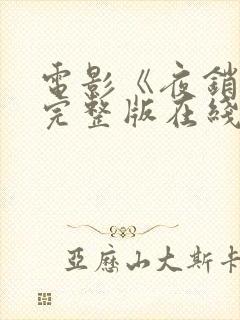 電影《夜銷
完整版在綫
亞歷山大斯卡